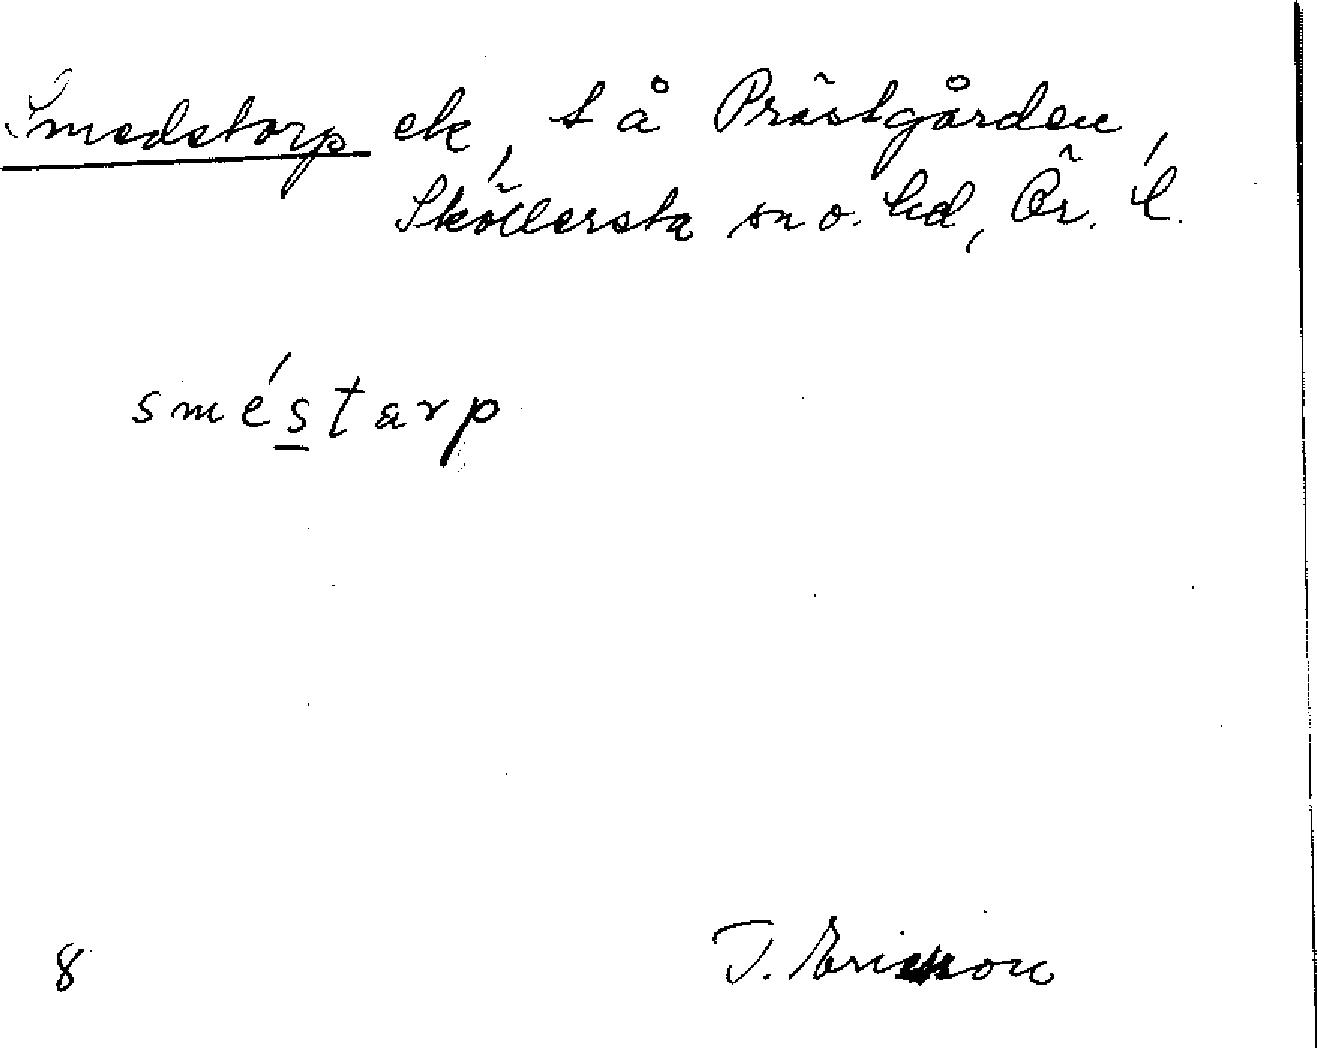 Smedstorp ek, t å Prästgården,
Sköllersta sn o. hd, Ör. l.
sméstarp
8
T. Ericsson